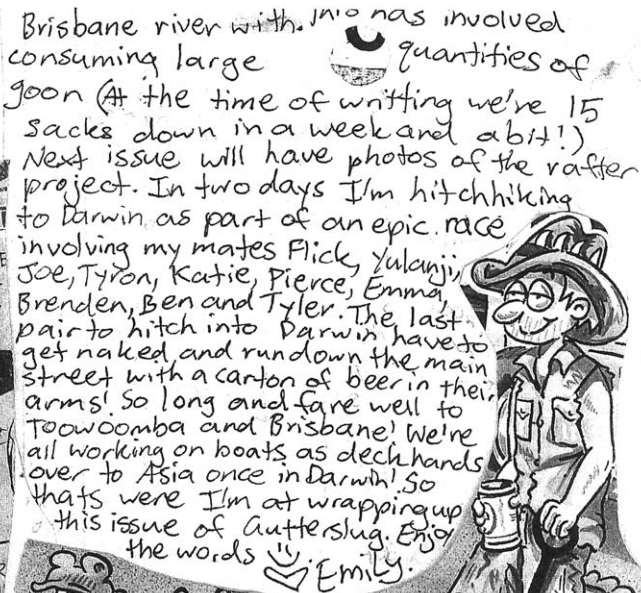 Brisbane river with. This has involved
consuming large quantities of
goon (At the time of writting we're 15
sacks down in a week and a bit!)
Next issue will have photos of the rafter
project. In two days I'm hitchhiking
to Darwin as part of an epic race
involving my mates Flick, Yulanji,
Joe, Tyron, Katie, Pierce, Emma,
Brenden, Ben and Tyler. The last
pair to hitch into Darwin have to
get naked and run down the main
street with a carton of beer in their
arms! So long and fare well to
Toowoomba and Brisbane! We're
all working on boats as deckhands
over to Asia once in Darwin! So
thats were I'm at wrapping up
this issue of Gutterslug. Enjoy
the words Emily.